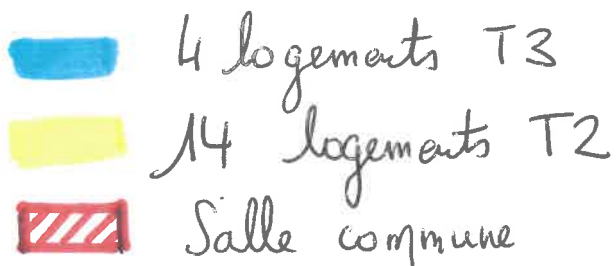 4 logements T3
14 logements T2
Salle commune